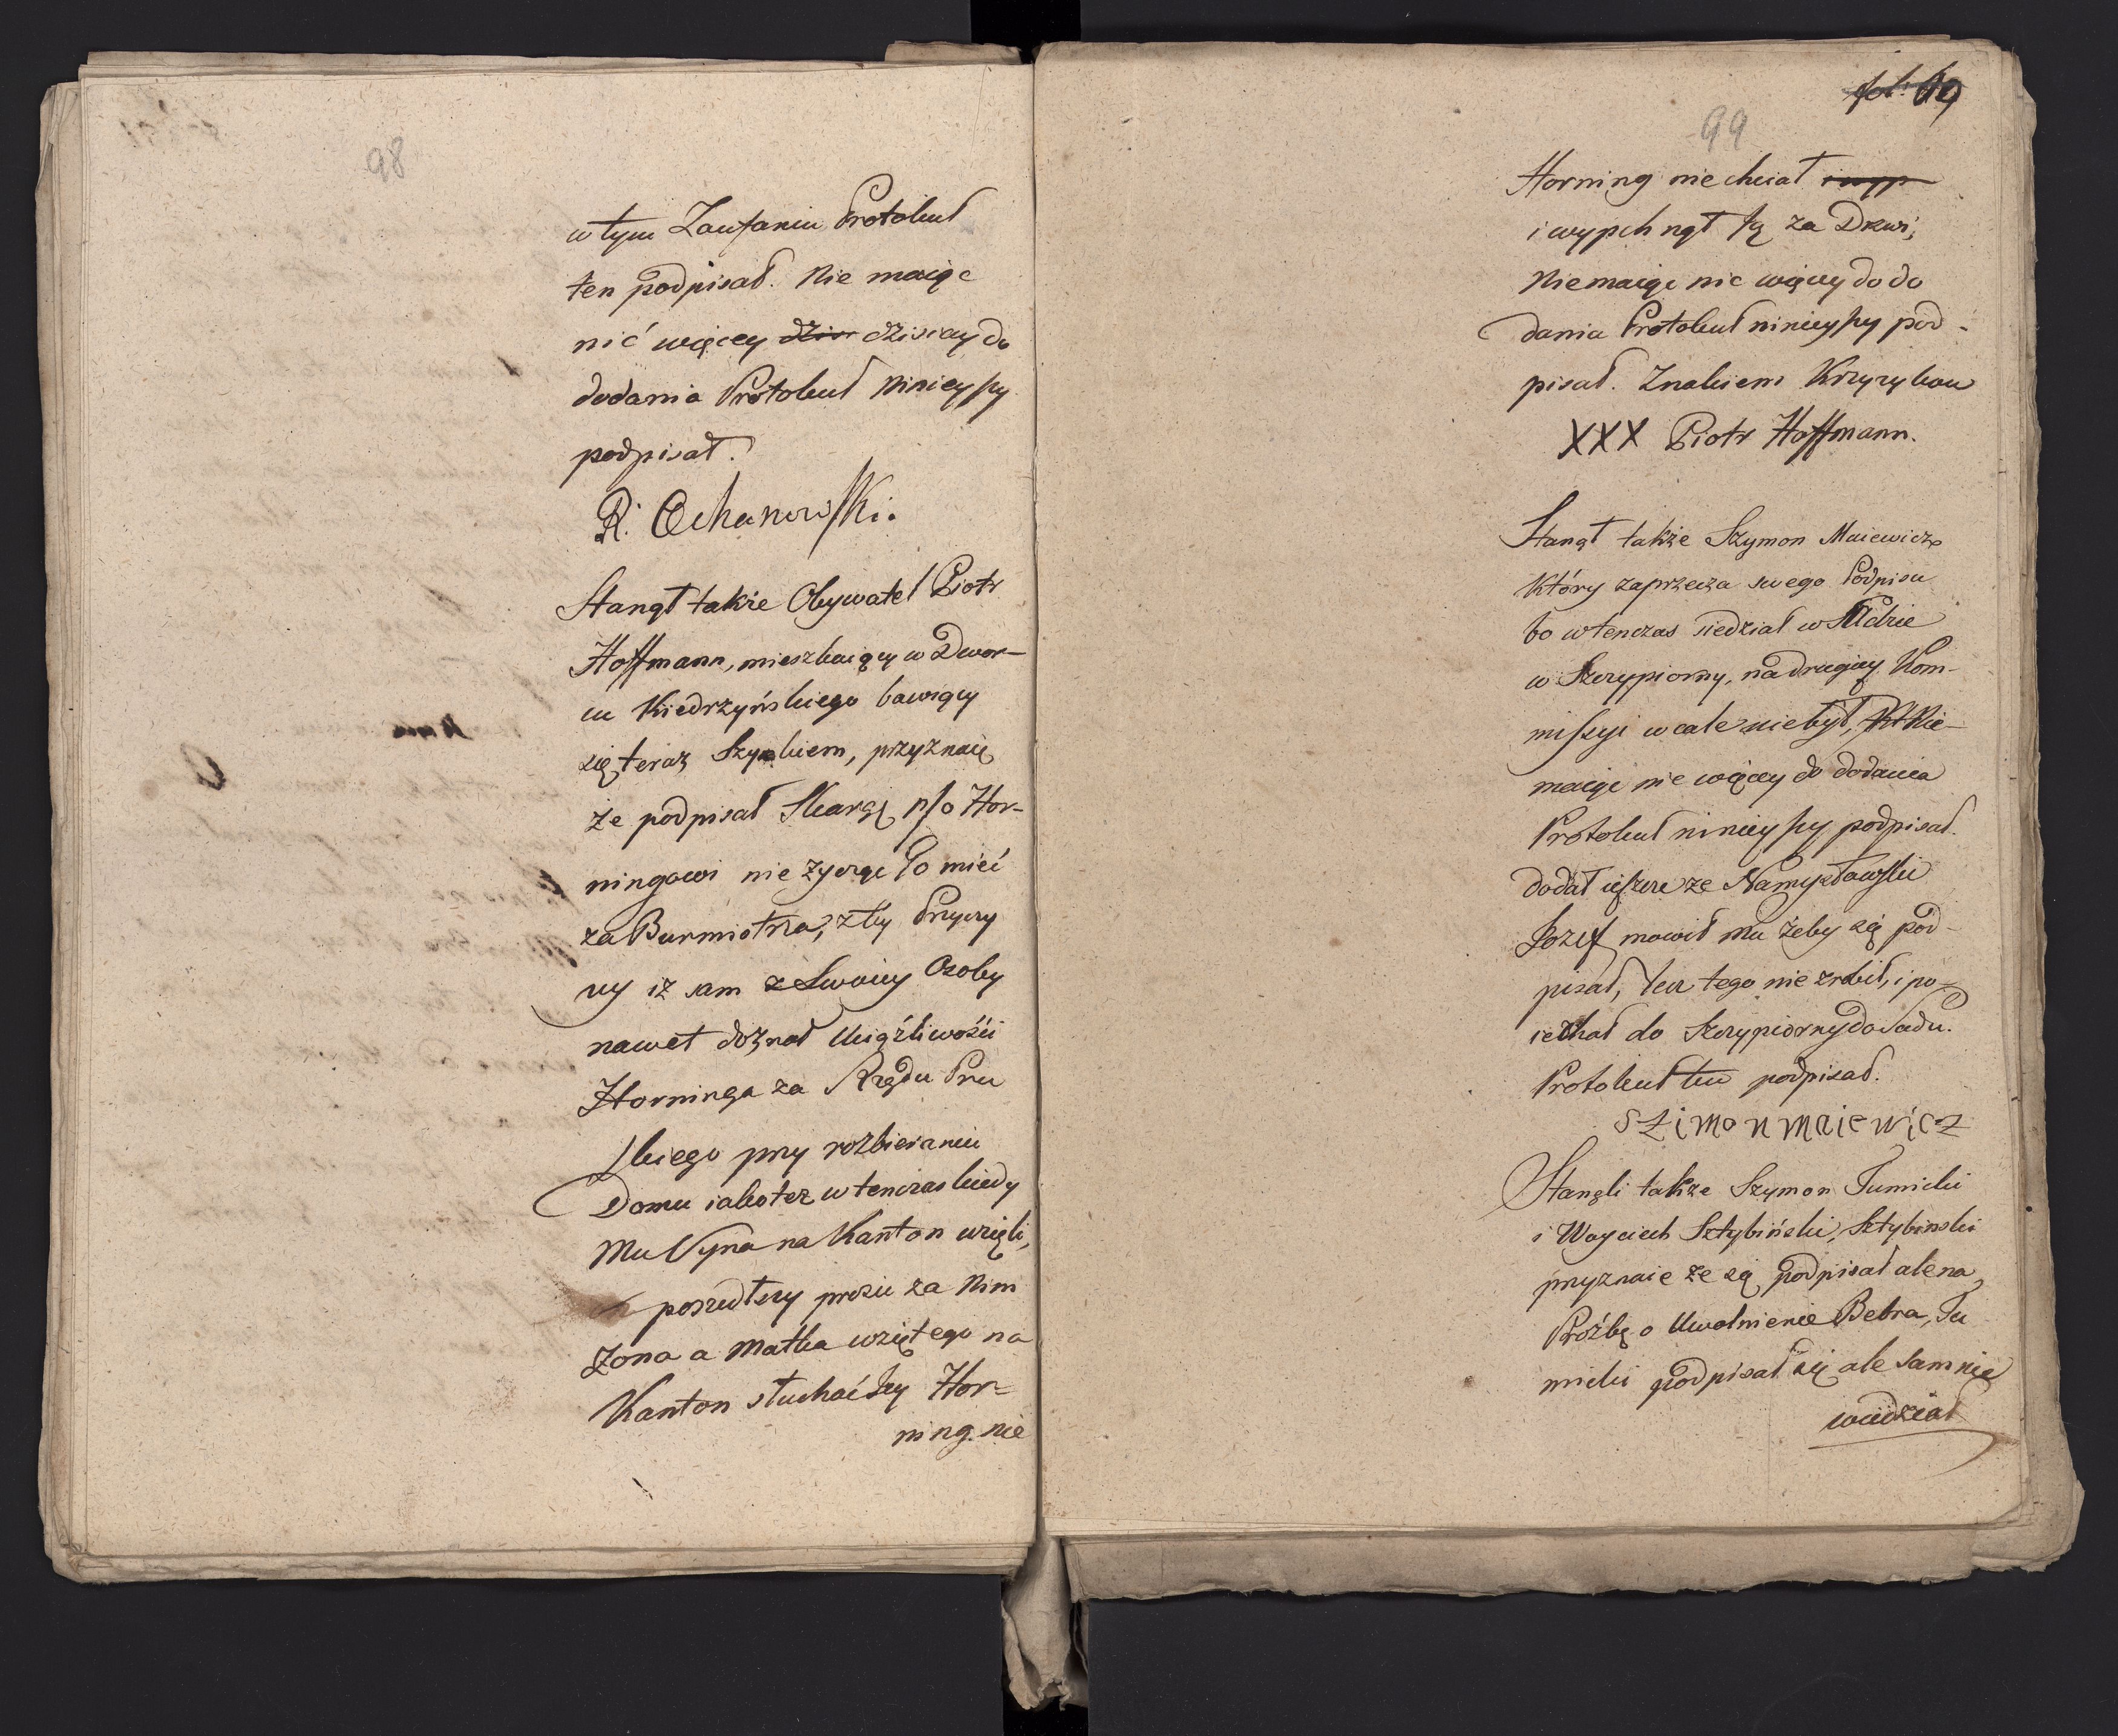 98
w tym Zaufaniu Protokuł
ten podpisał. Nie maiąc
nić więcey dzis dzisiay do
dodania Protokuł ninieyszy
podpisał.
R. Ochanowski.
Stanął także Obywatel Piotr
Hoffmann, mieszkaiący w Dwor-
ku Kiedrzyńskiego bawiący
się teraz Szynkiem, przyznaie
że podpisał Skargę p/o Hor-
ningowi nie życząc Go mieć
za Burmistrza, z tey Przyczy
ny iż sam z Swoiey Osoby
nawet doznał Uciążliwości
Horninga za Rządu Pru
skiego przy rozbieraniu
Domu iakoteż w tenczas kiedy
Mu Syna na Kanton wzięli,
poszedłszy prosić za Nim
Zona a Matka wziętego na
Kanton słuchać Jey Hor-
ning. nie
fol: 69
99
Horning niechciał i wyp
i wypchnął Ją za Drzwi,
Niemaiąc nic więcey do do
dania Protokuł ninieyszy pod-
pisał. Znakiem Krzyzykow
XXX Piotr Hoffmann.
Stanął także Szymon Maiewicz
Który zaprzecza swego Podpisu
bo wtenczas siedział w
w Szczypiorny, na drugiey Kom-
missyi wcale nie był, Nie-
maiąc nic więcey do dodania
Protokuł ninieyszy podpisał.
dodał ieszcze ze Namysławski
Jozef mowił mu żeby się pod-
pisał, lecz tego nie zrobił, i po-
iechał do Szczypiorny do Sadu.
Protokuł ten podpisał.
Szimon maiewicz
Stanęli także Szymon Tumicki
i Woyciech Sztybiński, Sztybinski
przyznaie ze się podpisał ale na
Proźbę o Uwolnienie Bebra, Tu
micki podpisał się ale sam nie
wiedział